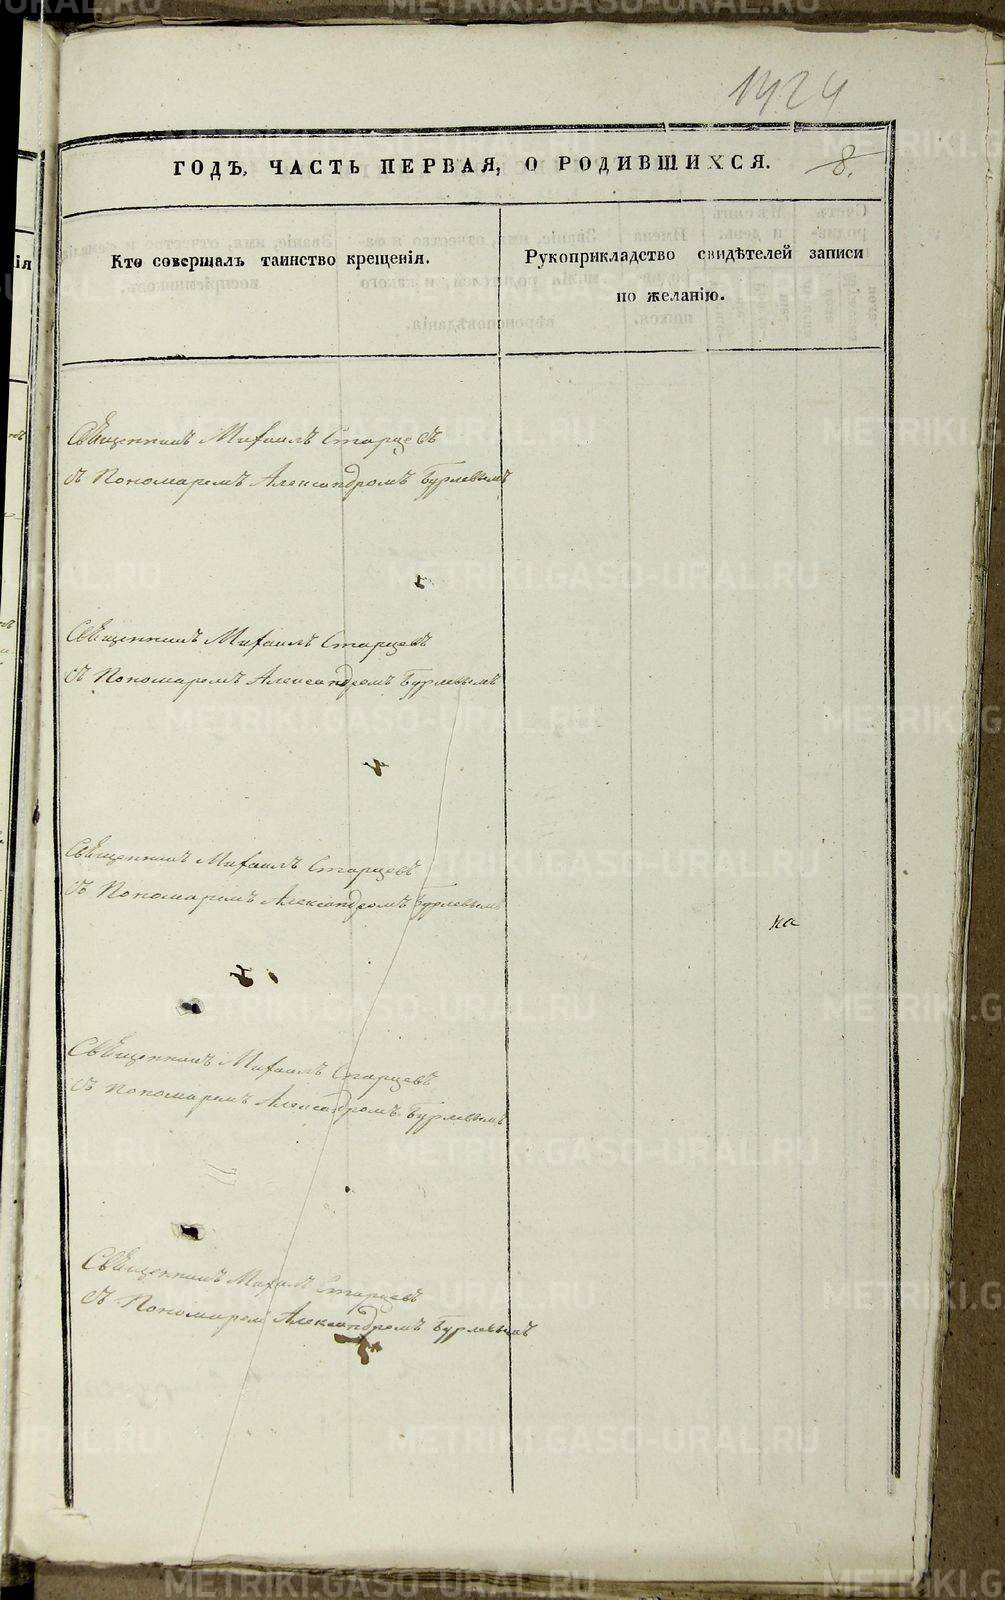 1424
ГОДЪ, ЧАСТЬ ПЕРВАЯ, О РОДИВШИХСЯ.
8.
Кто совершалъ таинство крещенія.
Рукоприкладство свидѣтелей записи
по желанію.
Священникъ Михаилъ Старцевъ
съ Пономаремъ Александромъ Бурлевымъ
Священникъ Михаилъ Старцевъ
съ Пономаремъ Александромъ Бурлевымъ
Священникъ Михаилъ Старцевъ
съ Пономаремъ Александромъ Бурлевымъ
на
Священникъ Михаилъ Старцевъ
съ Пономаремъ Александромъ Бурлевымъ
Священникъ Михаилъ Старцевъ
съ Пономаремъ Александромъ Бурлевымъ
METRIKI.GASO-URAL.RU